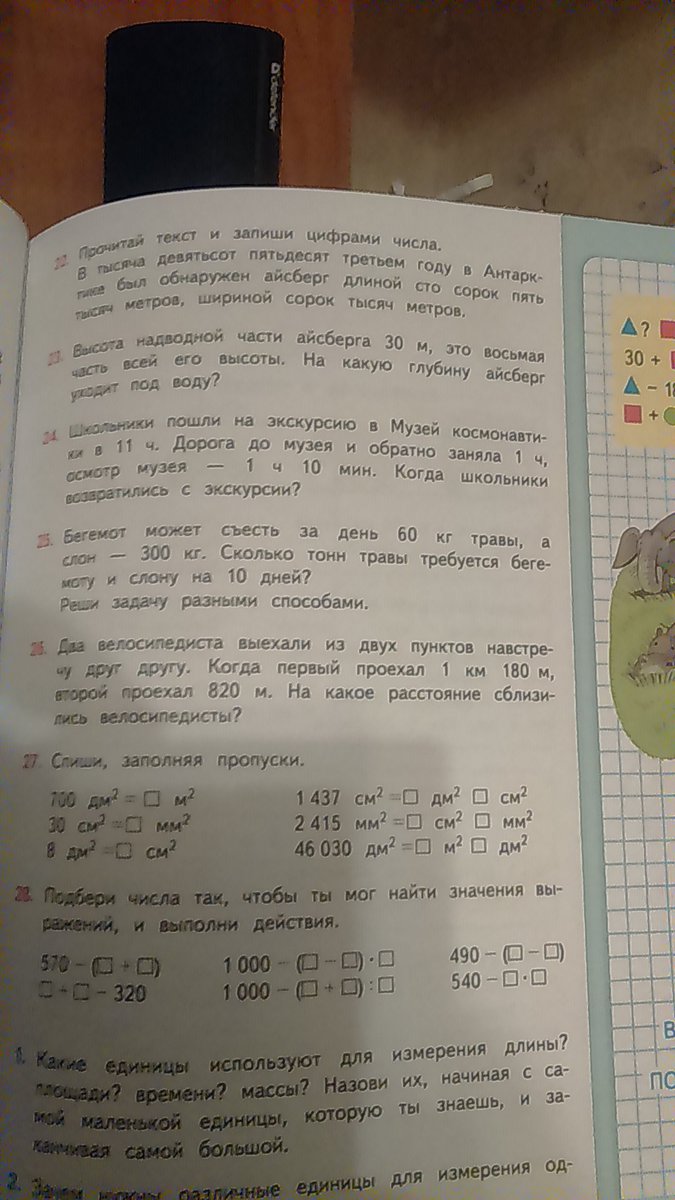 defender
22. Прочитай текст и запиши цифрами числа.
В тысяча девятьсот пятьдесят третьем году в Антарк-
тике был обнаружен айсберг длиной сто сорок пять
тысяч метров, шириной сорок тысяч метров.
23. Высота надводной части айсберга 30 м, это восьмая
часть всей его высоты. На какую глубину айсберг
уходит под воду?
24. Школьники пошли на экскурсию в Музей космонавти-
ки в 11 ч. Дорога до музея и обратно заняла 1 ч,
осмотр музея — 1 ч 10 мин. Когда школьники
возвратились с экскурсии?
25. Бегемот может съесть за день 60 кг травы, а
слон — 300 кг. Сколько тонн травы требуется беге-
моту и слону на 10 дней?
Реши задачу разными способами.
26. Два велосипедиста выехали из двух пунктов навстре-
чу друг другу. Когда первый проехал 1 км 180 м,
второй проехал 820 м. На какое расстояние сблизи-
лись велосипедисты?
27. Спиши, заполняя пропуски.
700 дм² = □ м² 1 437 см² = □ дм² □ см²
30 см² = □ мм² 2 415 мм² = □ см² □ мм²
8 дм² = □ см² 46 030 дм² = □ м² □ дм²
28. Подбери числа так, чтобы ты мог найти значения вы-
ражений, и выполни действия.
570 − (□ + □) 1 000 − (□ − □) · □ 490 − (□ − □)
□ + □ − 320 1 000 − (□ + □) : □ 540 − □ · □
1. Какие единицы используют для измерения длины?
площади? времени? массы? Назови их, начиная с са-
мой маленькой единицы, которую ты знаешь, и за-
канчивая самой большой.
2. Зачем нужны различные единицы для измерения од-
▲ ?
30 +
▲ − 18
■ +
В
ПО